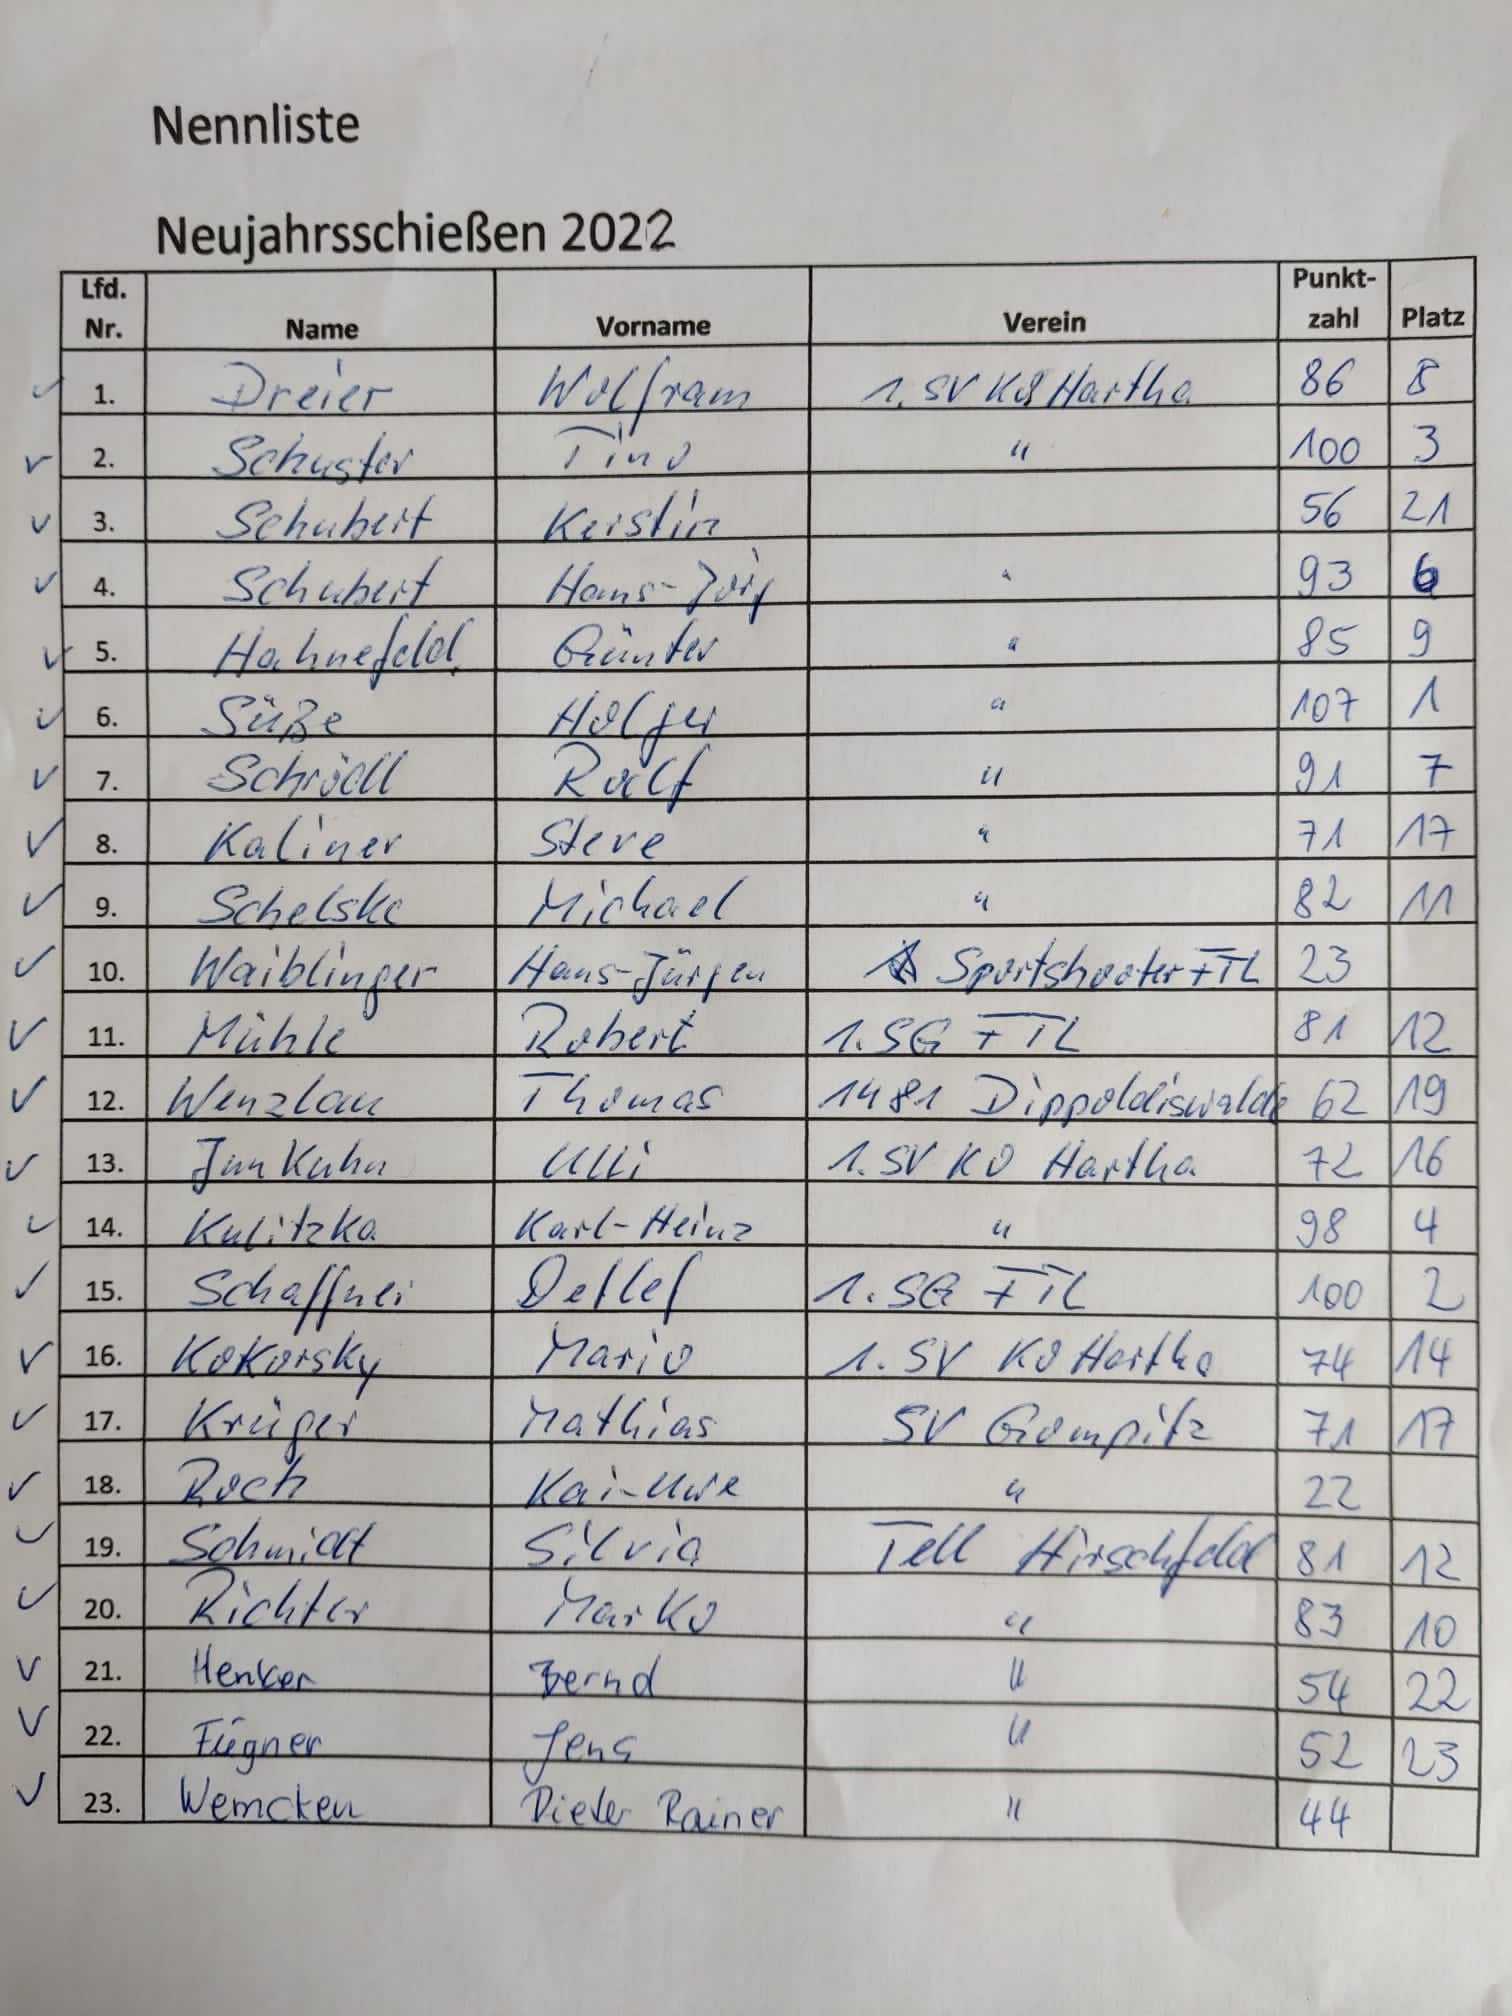 Nennliste
Neujahrsschießen 2022
Lfd. Nr. Name Vorname Verein Punkt-zahl Platz
1. Dreier Wolfram 1. SV KO Hartha 86 8
2. Schuster Tino " 100 3
3. Schubert Kerstin 56 21
4. Schubert Hans-Jörg " 93 6
5. Hahnefeld Günter " 85 9
6. Süße Holger " 107 1
7. Schrödl Ralf " 91 7
8. Kaliner Steve " 71 17
9. Schelske Michael " 82 11
10. Waiblinger Hans-Jürgen Sportshooter FTL 23
11. Mühle Robert 1. SG FTL 81 12
12. Wenzlau Thomas 1481 Dippoldiswalde 62 19
13. Junkuhn Ulli 1. SV KO Hartha 72 16
14. Kulitzka Karl-Heinz " 98 4
15. Detlef 1. SG FTL 100 2
16. Kokorsky Mario 1. SV KO Hartha 74 14
17. Krüger Mathias SV Gompitz 71 17
18. Roch Kai-Uwe " 22
19. Schmidt Silvia Tell Hirschfeld 81 12
20. Richter Marko " 83 10
21. Henker Bernd " 54 22
22. Fügner Jens " 52 23
23. Wemcken Dieter Rainer " 44